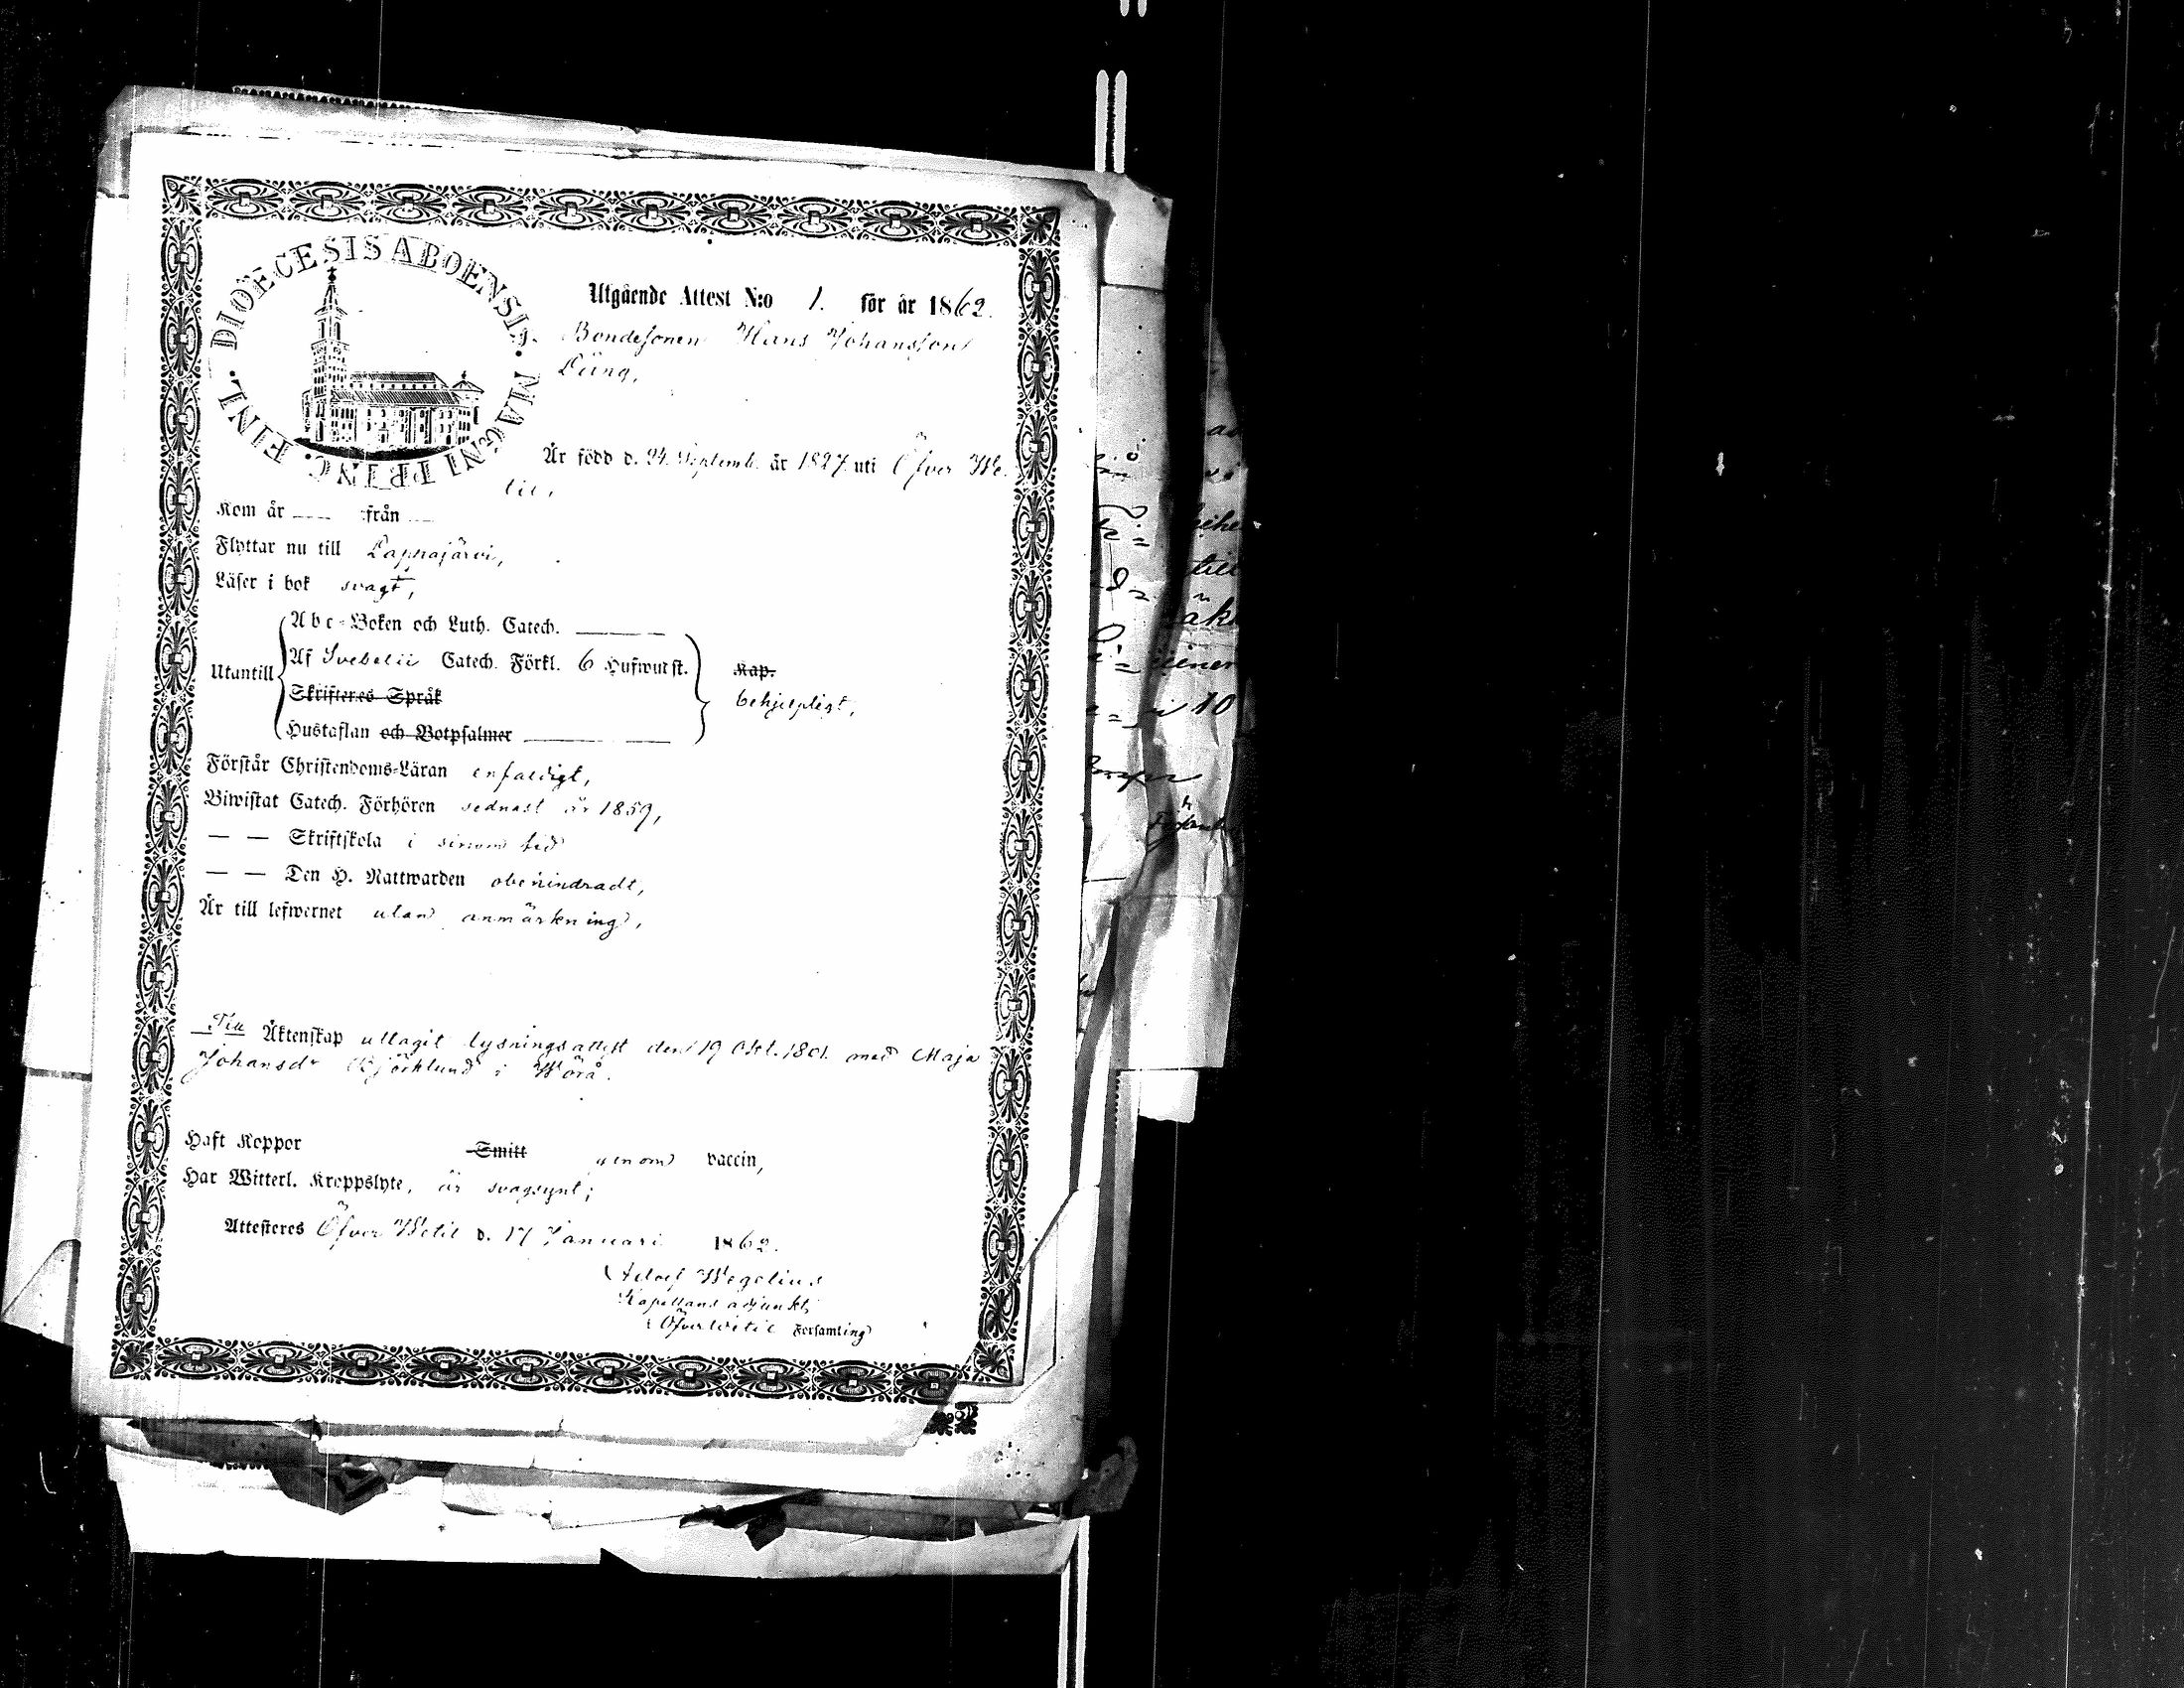 DIOECESIS ABOENSIS. MAGNI PRINC. FINL.
Utgående Attest N:o 1. för år 1862.
Bondesonen Hans Johansson
Ling,
Är född d. 24. Septemb. år 1827 uti Öfver We-
til,
Kom år ---- från ---
Flyttar nu till Lappajärvi,
Läser i bok svagt,
Utantill
Abc-Boken och Luth. Catech. ————
Af Svebelii Catech. Förkl. 6 Hufwudst.
Skrifteres Språk
Hustaflan och Botpsalmer ————
Kap.
behjelpligt,
Förstår Christendoms-Läran enfaldigt,
Biwistat Catech. Förhören sednast år 1859,
— — Skriftskola i sinom tid
— — Den H. Nattwarden obehindradt,
Är till lefwernet utan anmärkning,
Till Äktenskap uttagit lysningsattest den 19 Okt. 1861. med Maja
Johansdr Björklund i Wörå.
Haft Koppor Smitt genom vaccin,
Har Witterl. Kroppslyte, är svagsynt;
Attesteres Öfver Wetil d. 17 Januari 1862.
Adolf Wegelius
Kapellans adjunkt i
Öfver Wetil Församling